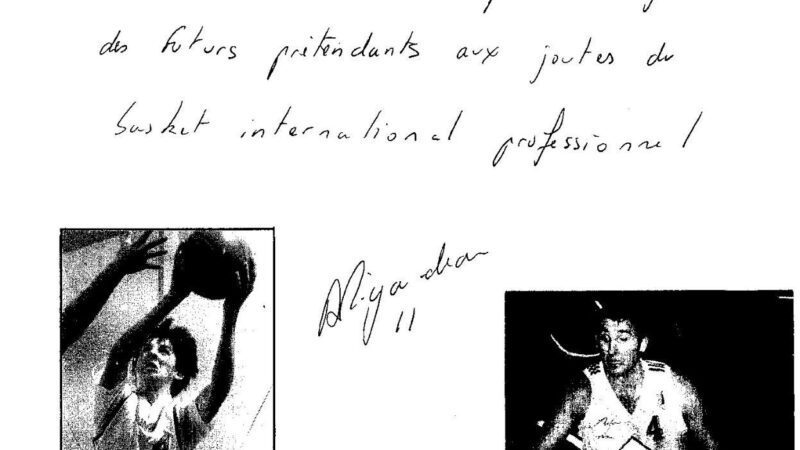 des futurs prétendants aux joutes du
basket international professionnel
11
4